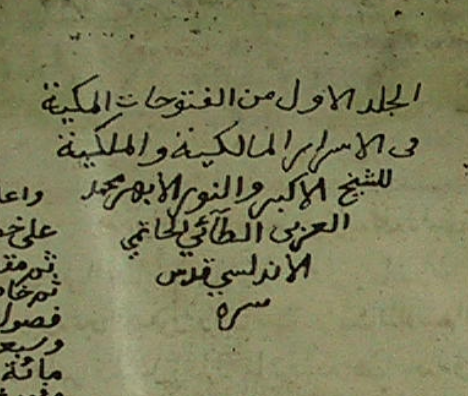 الجلد الاول من الفتوحات المكية
فى الاسرار المالكية والملكية
للشيخ الاكبر والنور الابهر محمد
العربى الطآئي الحاتمي
الاندلسي قدس
سره
واعل
على خ
ثم مق
ثم خا
فصول
وسبع
مائة